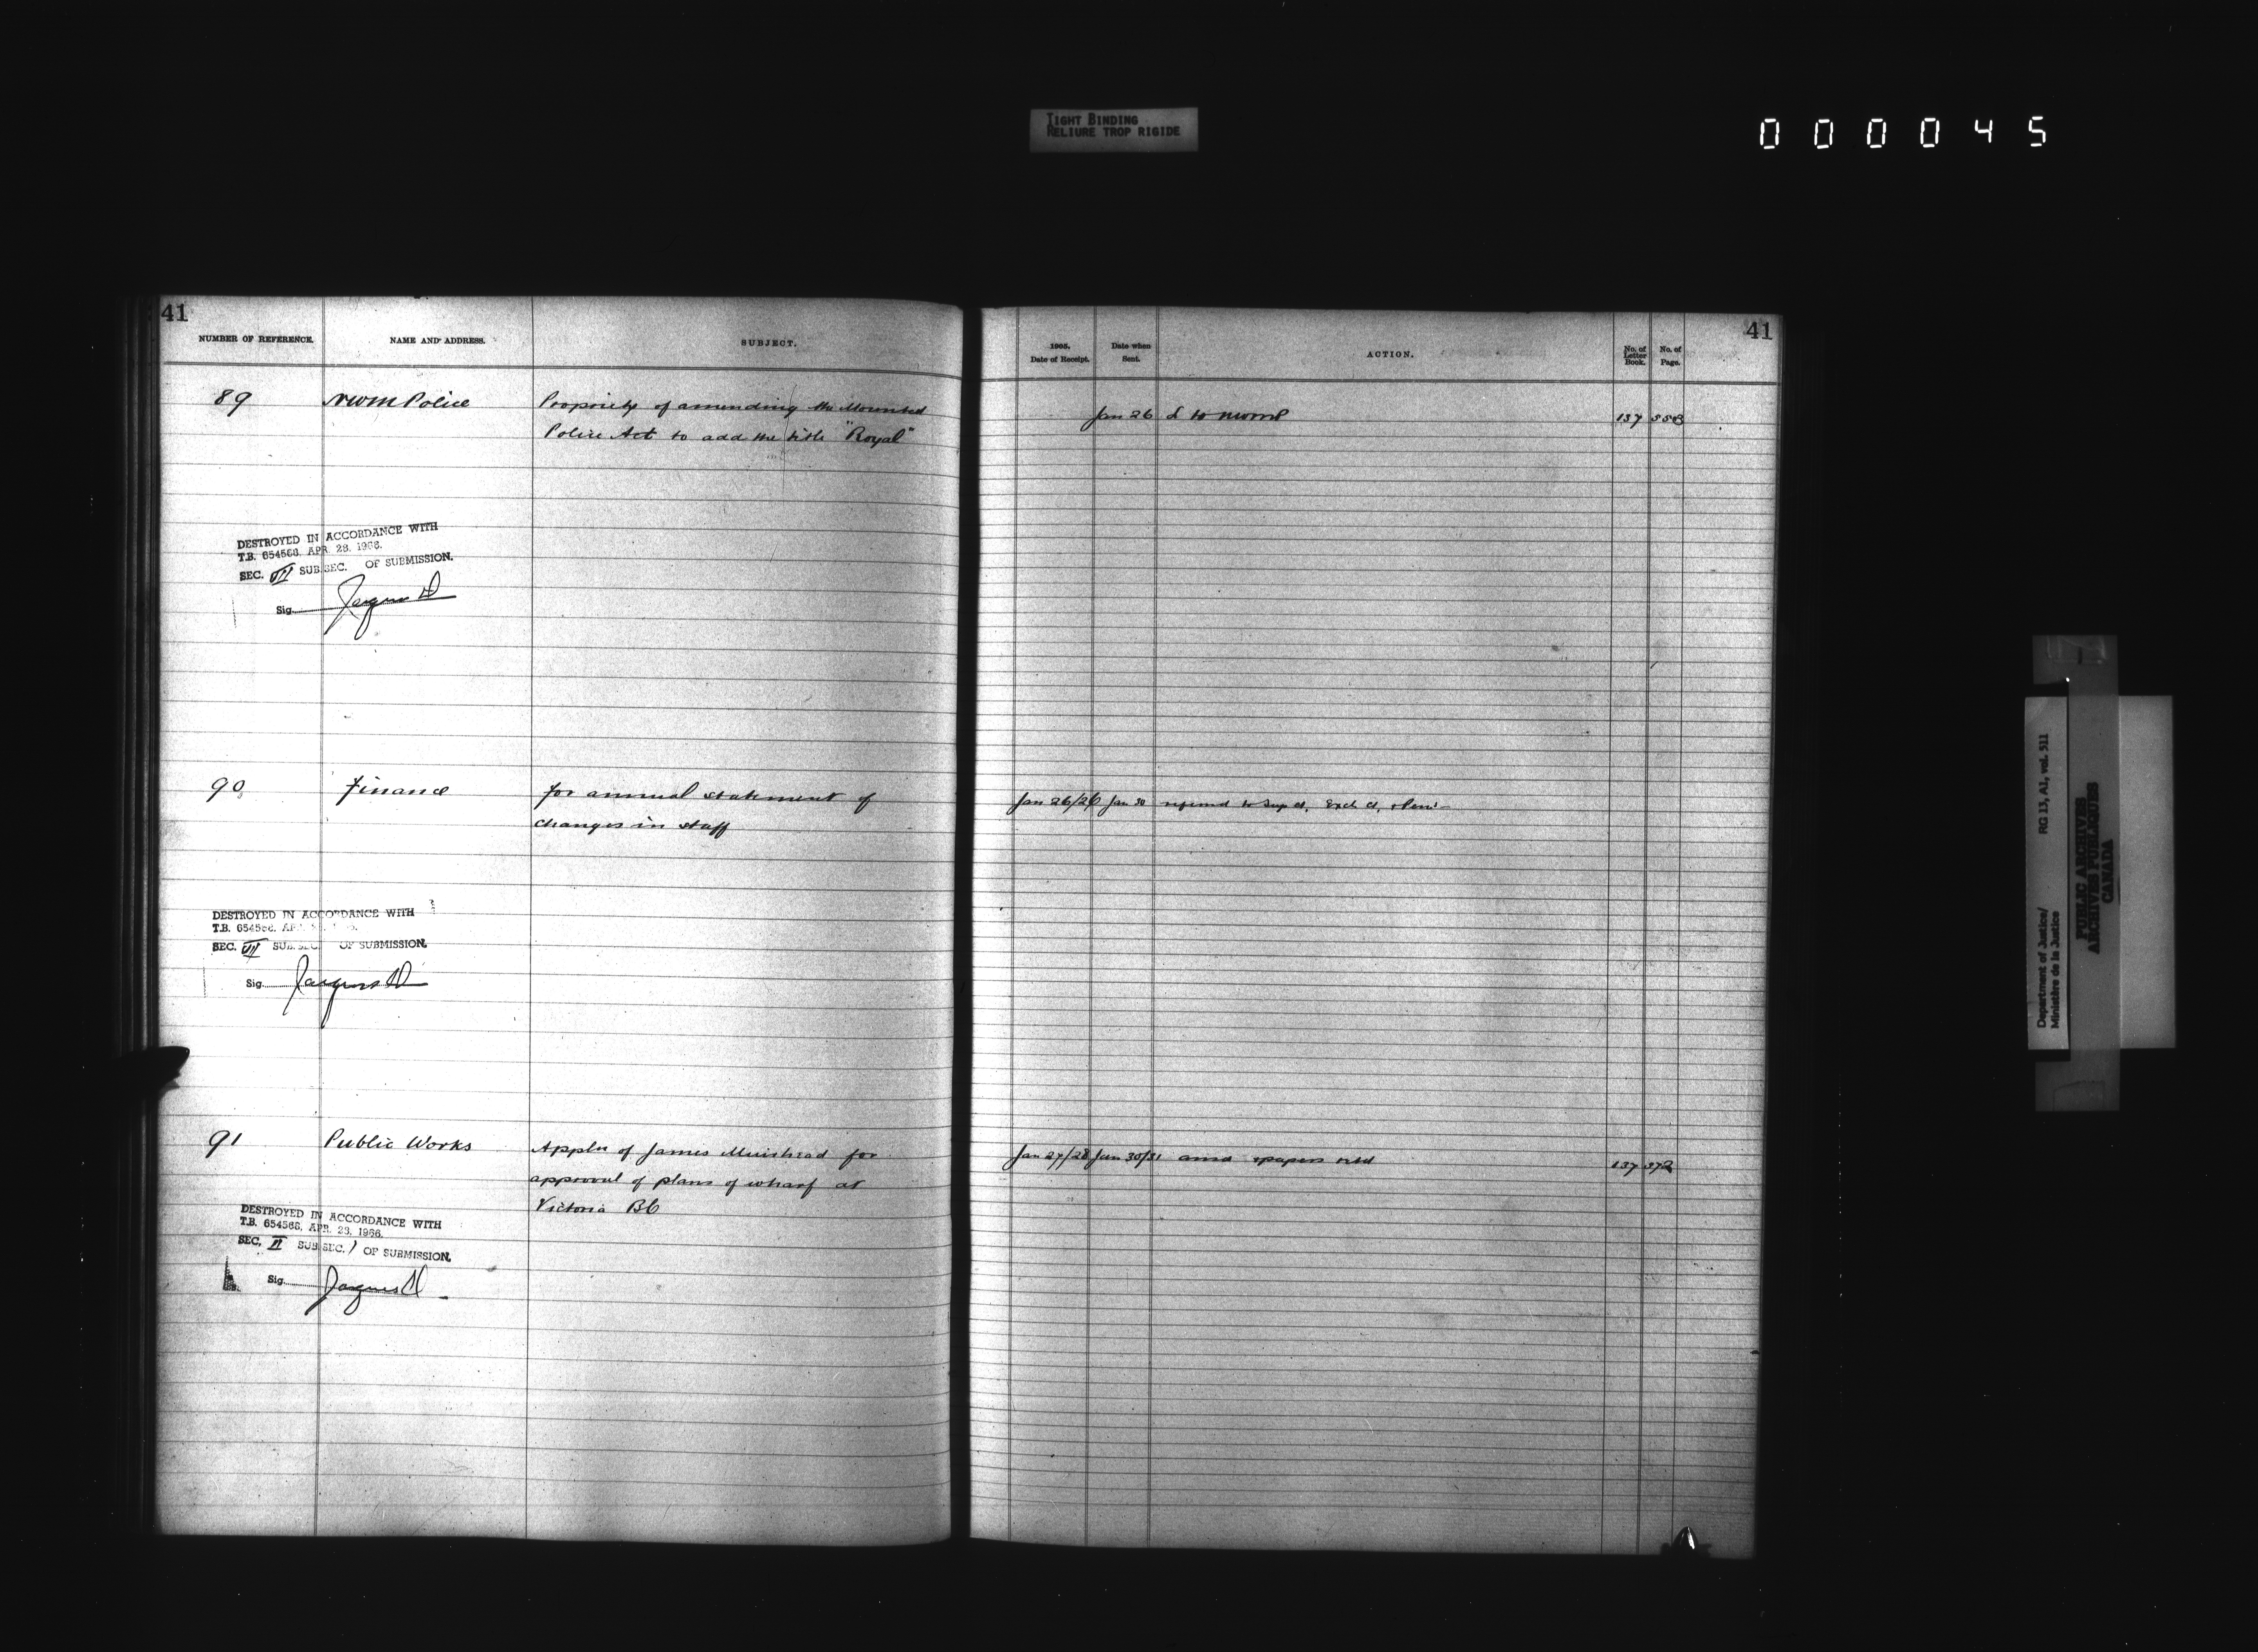 TIGHT BINDING
RELIURE TROP RIGIDE
000045
41
NUMBER OF REFERENCE.
NAME AND ADDRESS.
SUBJECT.
89
NWM Police
Propriety of amending the Mounted
Police Act to add the title "Royal"
DESTROYED IN ACCORDANCE WITH
T.B. 654568, APR. 28, 1966.
SEC. VII SUB.SEC. OF SUBMISSION.
Sig. Jacques D
90
Finance
for annual statement of
changes in staff
DESTROYED IN ACCORDANCE WITH
T.B. 654568, APR.
SEC. VII SUB.SEC. OF SUBMISSION.
Sig. Jacques D
91
Public Works
Appln of James Muirhead for
approval of plans of wharf at
Victoria BC
DESTROYED IN ACCORDANCE WITH
T.B. 654568, APR. 28, 1966.
SEC. II SUB.SEC. 1 OF SUBMISSION.
Sig. Jacques D
41
1905.
Date of Receipt.
Date when
Sent.
ACTION.
No. of
Letter
Book.
No. of
Page.
Jan 26 L to NWMP 137
Jan 26/26 Jan 30 referred to Sup Ct, Exch Ct,
Jan 27/28 Jan 30/31 papers retd 137 372
Department of Justice/ RG 13, A1, vol. 511
Ministère de la Justice
PUBLIC ARCHIVES
ARCHIVES PUBLIQUES
CANADA